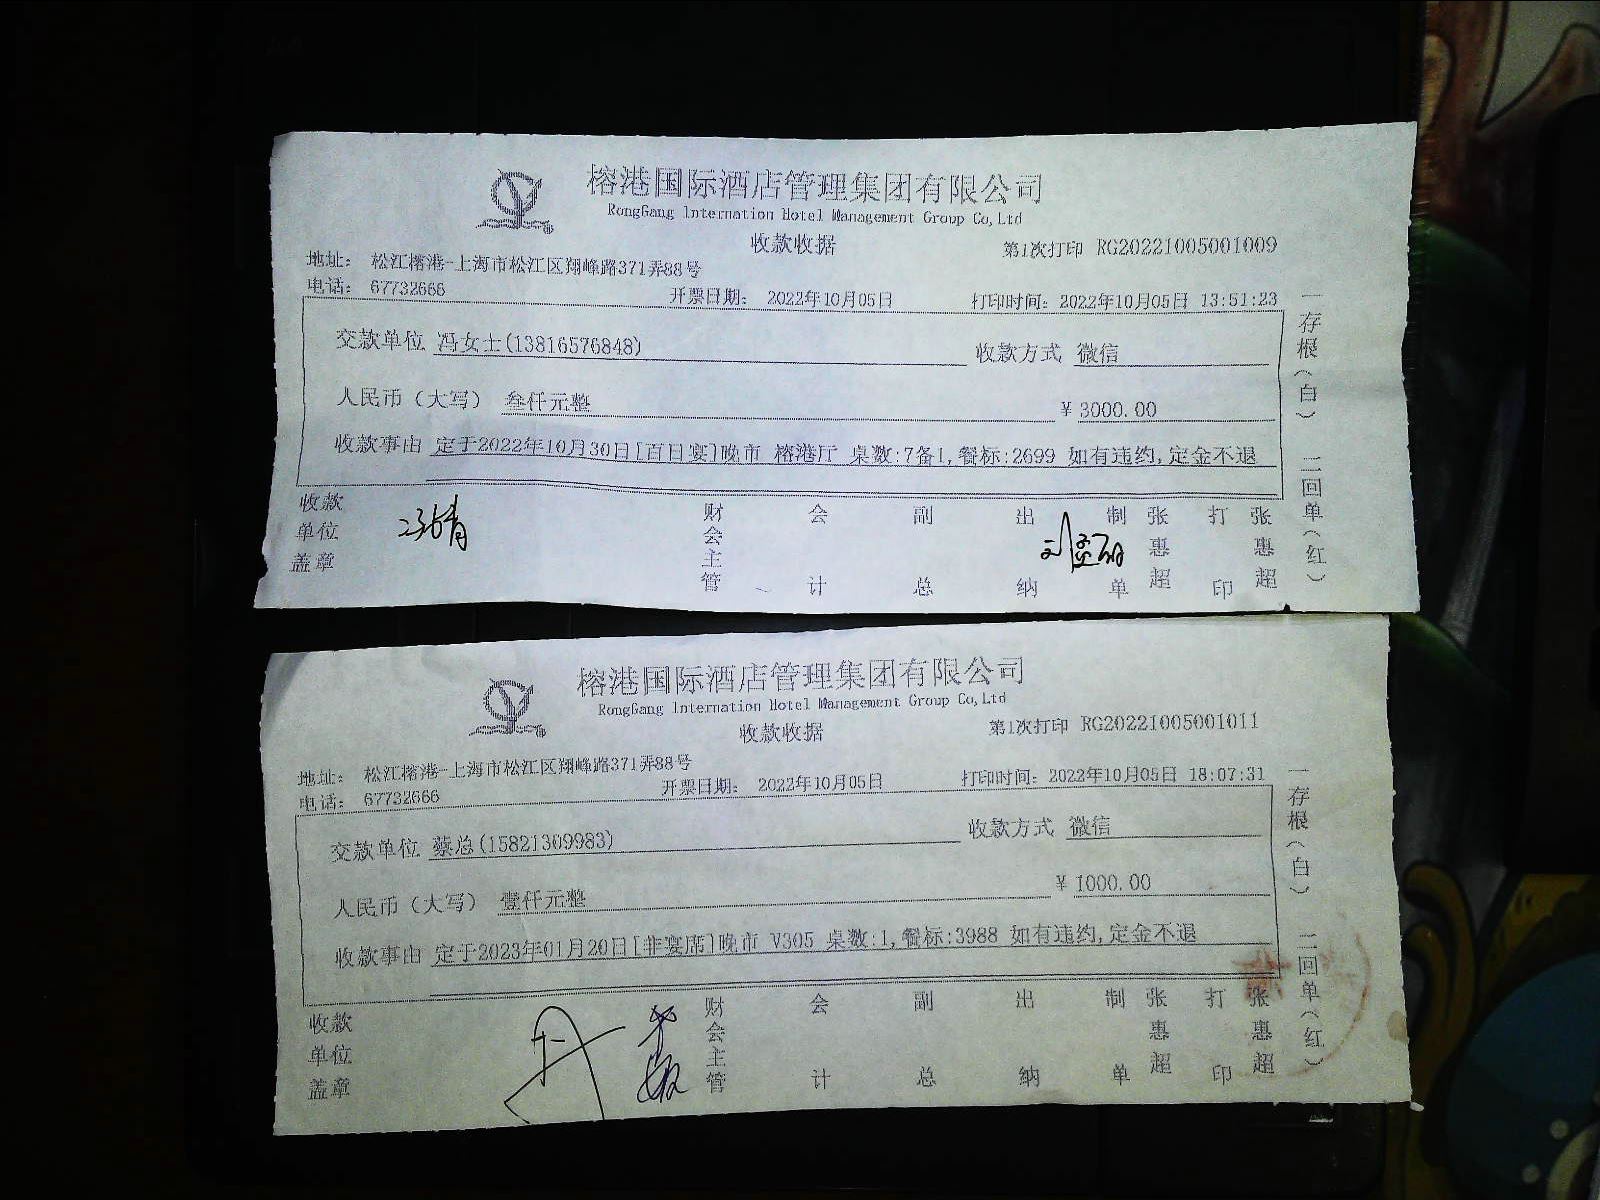 榕港国际酒店管理集团有限公司
RongGang Internation Hotel Management Group Co,Ltd
收款收据 第1次打印 RG20221005001009
地址： 松江榕港-上海市松江区翔峰路371弄88号
电话： 67732666 开票日期： 2022年10月05日 打印时间：2022年10月05日 13:51:23
交款单位 冯女士(13816576848) 收款方式 微信
人民币（大写） 叁仟元整 ￥3000.00
收款事由 定于2022年10月30日[百日宴]晚市 榕港厅 桌数:7备1,餐标:2699 如有违约,定金不退
收款单位盖章 财会主管 会计 副总 出纳 制单 张惠超 打印 张惠超
一存根（白） 二回单（红）
榕港国际酒店管理集团有限公司
RongGang Internation Hotel Management Group Co,Ltd
收款收据 第1次打印 RG20221005001011
地址： 松江榕港-上海市松江区翔峰路371弄88号
电话： 67732666 开票日期： 2022年10月05日 打印时间：2022年10月05日 18:07:31
交款单位 蔡总(15821309983) 收款方式 微信
人民币（大写） 壹仟元整 ￥1000.00
收款事由 定于2023年01月20日[非宴席]晚市 V305 桌数:1,餐标:3988 如有违约,定金不退
收款单位盖章 财会主管 会计 副总 出纳 制单 张惠超 打印 张惠超
一存根（白） 二回单（红）